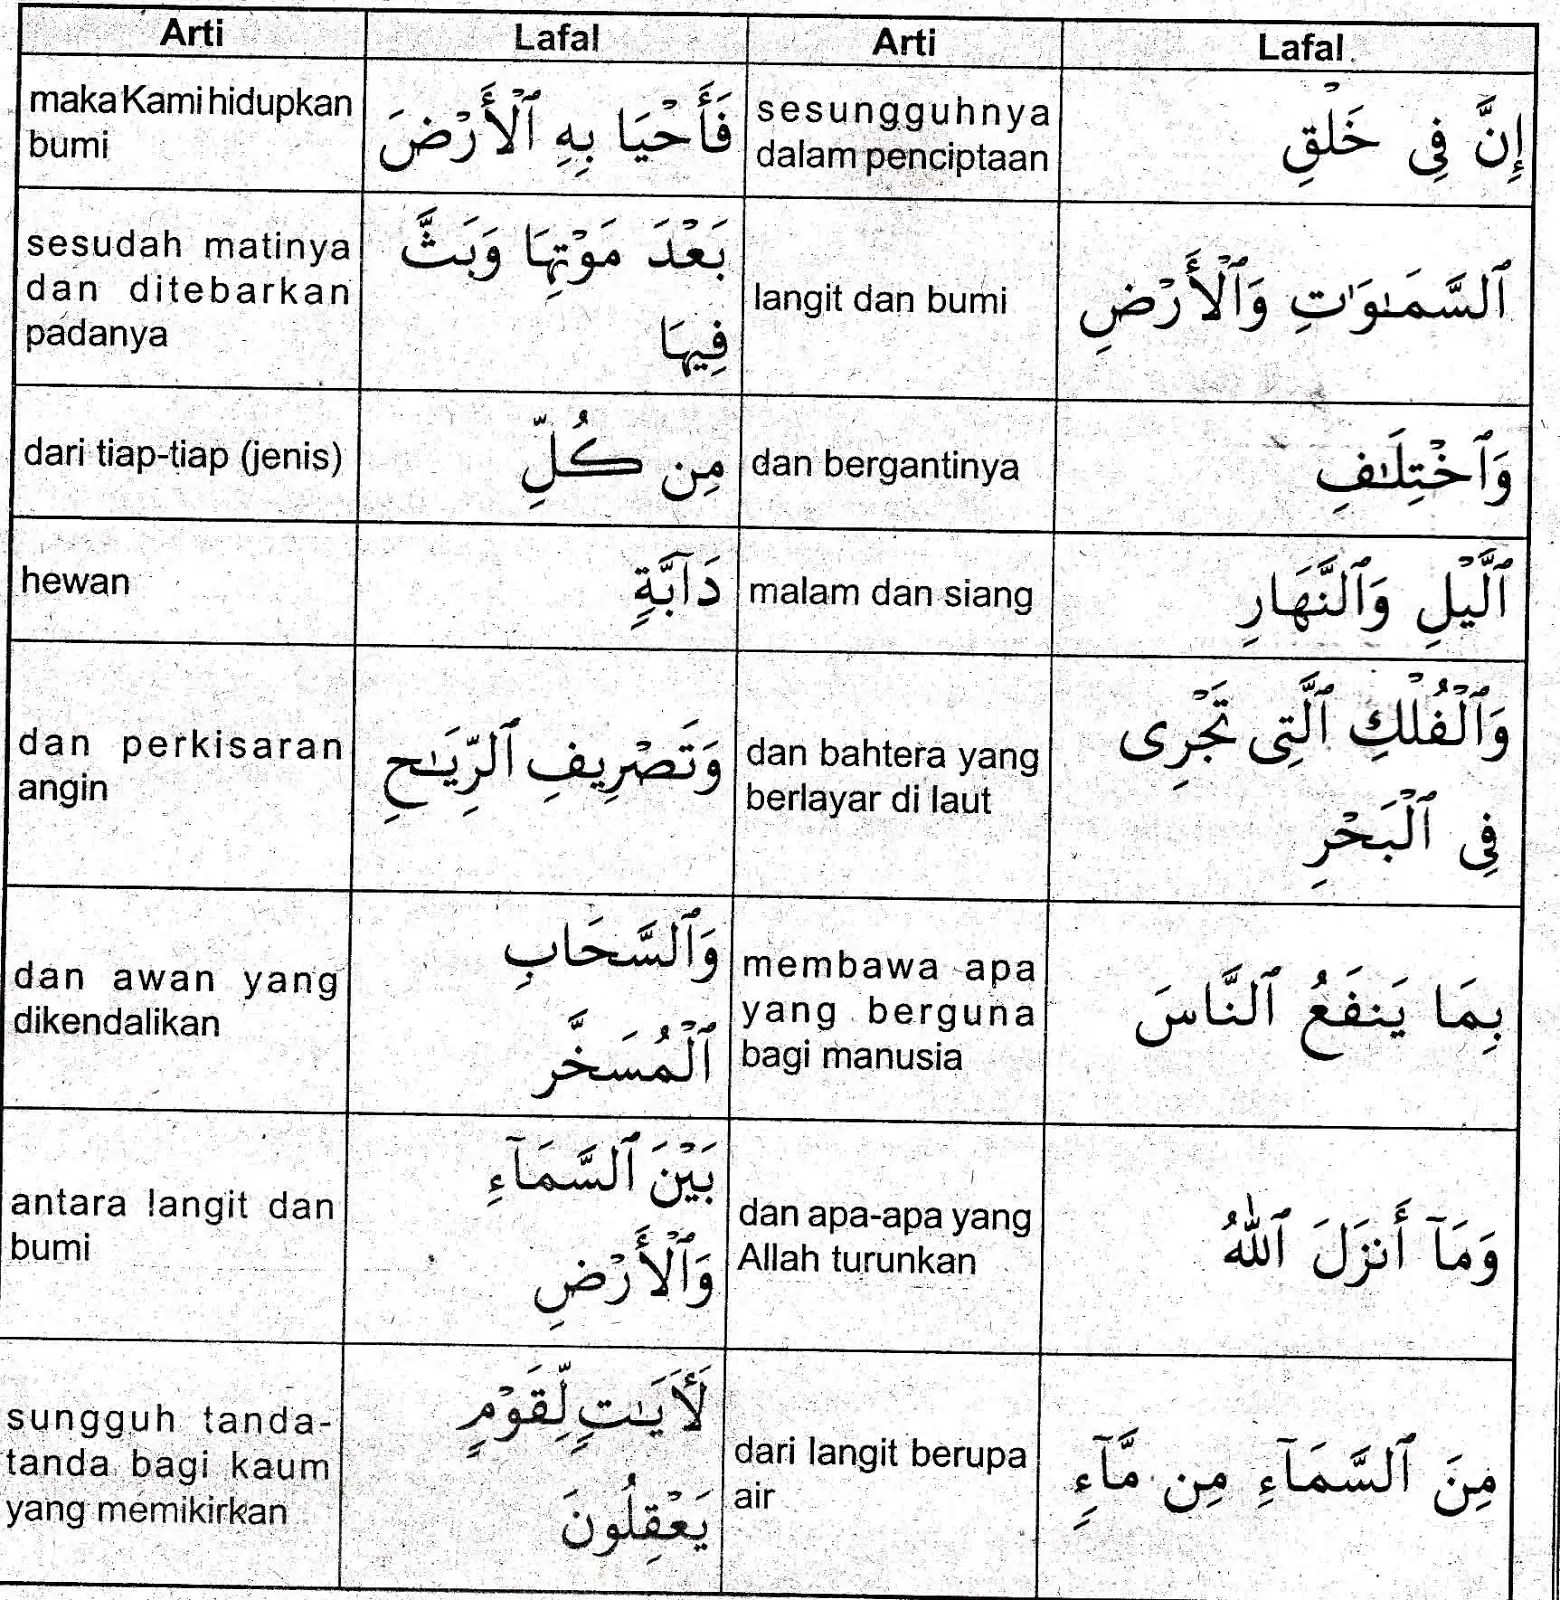 Arti Lafal Arti Lafal
maka Kami hidupkan
bumi
فَأَحْيَا بِهِ ٱلْأَرْضَ
sesungguhnya
dalam penciptaan
إِنَّ فِى خَلْقِ
sesudah matinya
dan ditebarkan
padanya
بَعْدَ مَوْتِهَا وَبَثَّ
فِيهَا
langit dan bumi
ٱلسَّمَـٰوَٰتِ وَٱلْأَرْضِ
dari tiap-tiap (jenis)
مِن كُلِّ
dan bergantinya
وَٱخْتِلَـٰفِ
hewan
دَآبَّةٍ
malam dan siang
ٱلَّيْلِ وَٱلنَّهَارِ
dan perkisaran
angin
وَتَصْرِيفِ ٱلرِّيَـٰحِ
dan bahtera yang
berlayar di laut
وَٱلْفُلْكِ ٱلَّتِى تَجْرِى
فِى ٱلْبَحْرِ
dan awan yang
dikendalikan
وَٱلسَّحَابِ
ٱلْمُسَخَّرِ
membawa apa
yang berguna
bagi manusia
بِمَا يَنفَعُ ٱلنَّاسَ
antara langit dan
bumi
بَيْنَ ٱلسَّمَآءِ
وَٱلْأَرْضِ
dan apa-apa yang
Allah turunkan
وَمَآ أَنزَلَ ٱللَّهُ
sungguh tanda-
tanda bagi kaum
yang memikirkan
لَـَٔايَـٰتٍ لِّقَوْمٍ
يَعْقِلُونَ
dari langit berupa
air
مِنَ ٱلسَّمَآءِ مِن مَّآءٍ